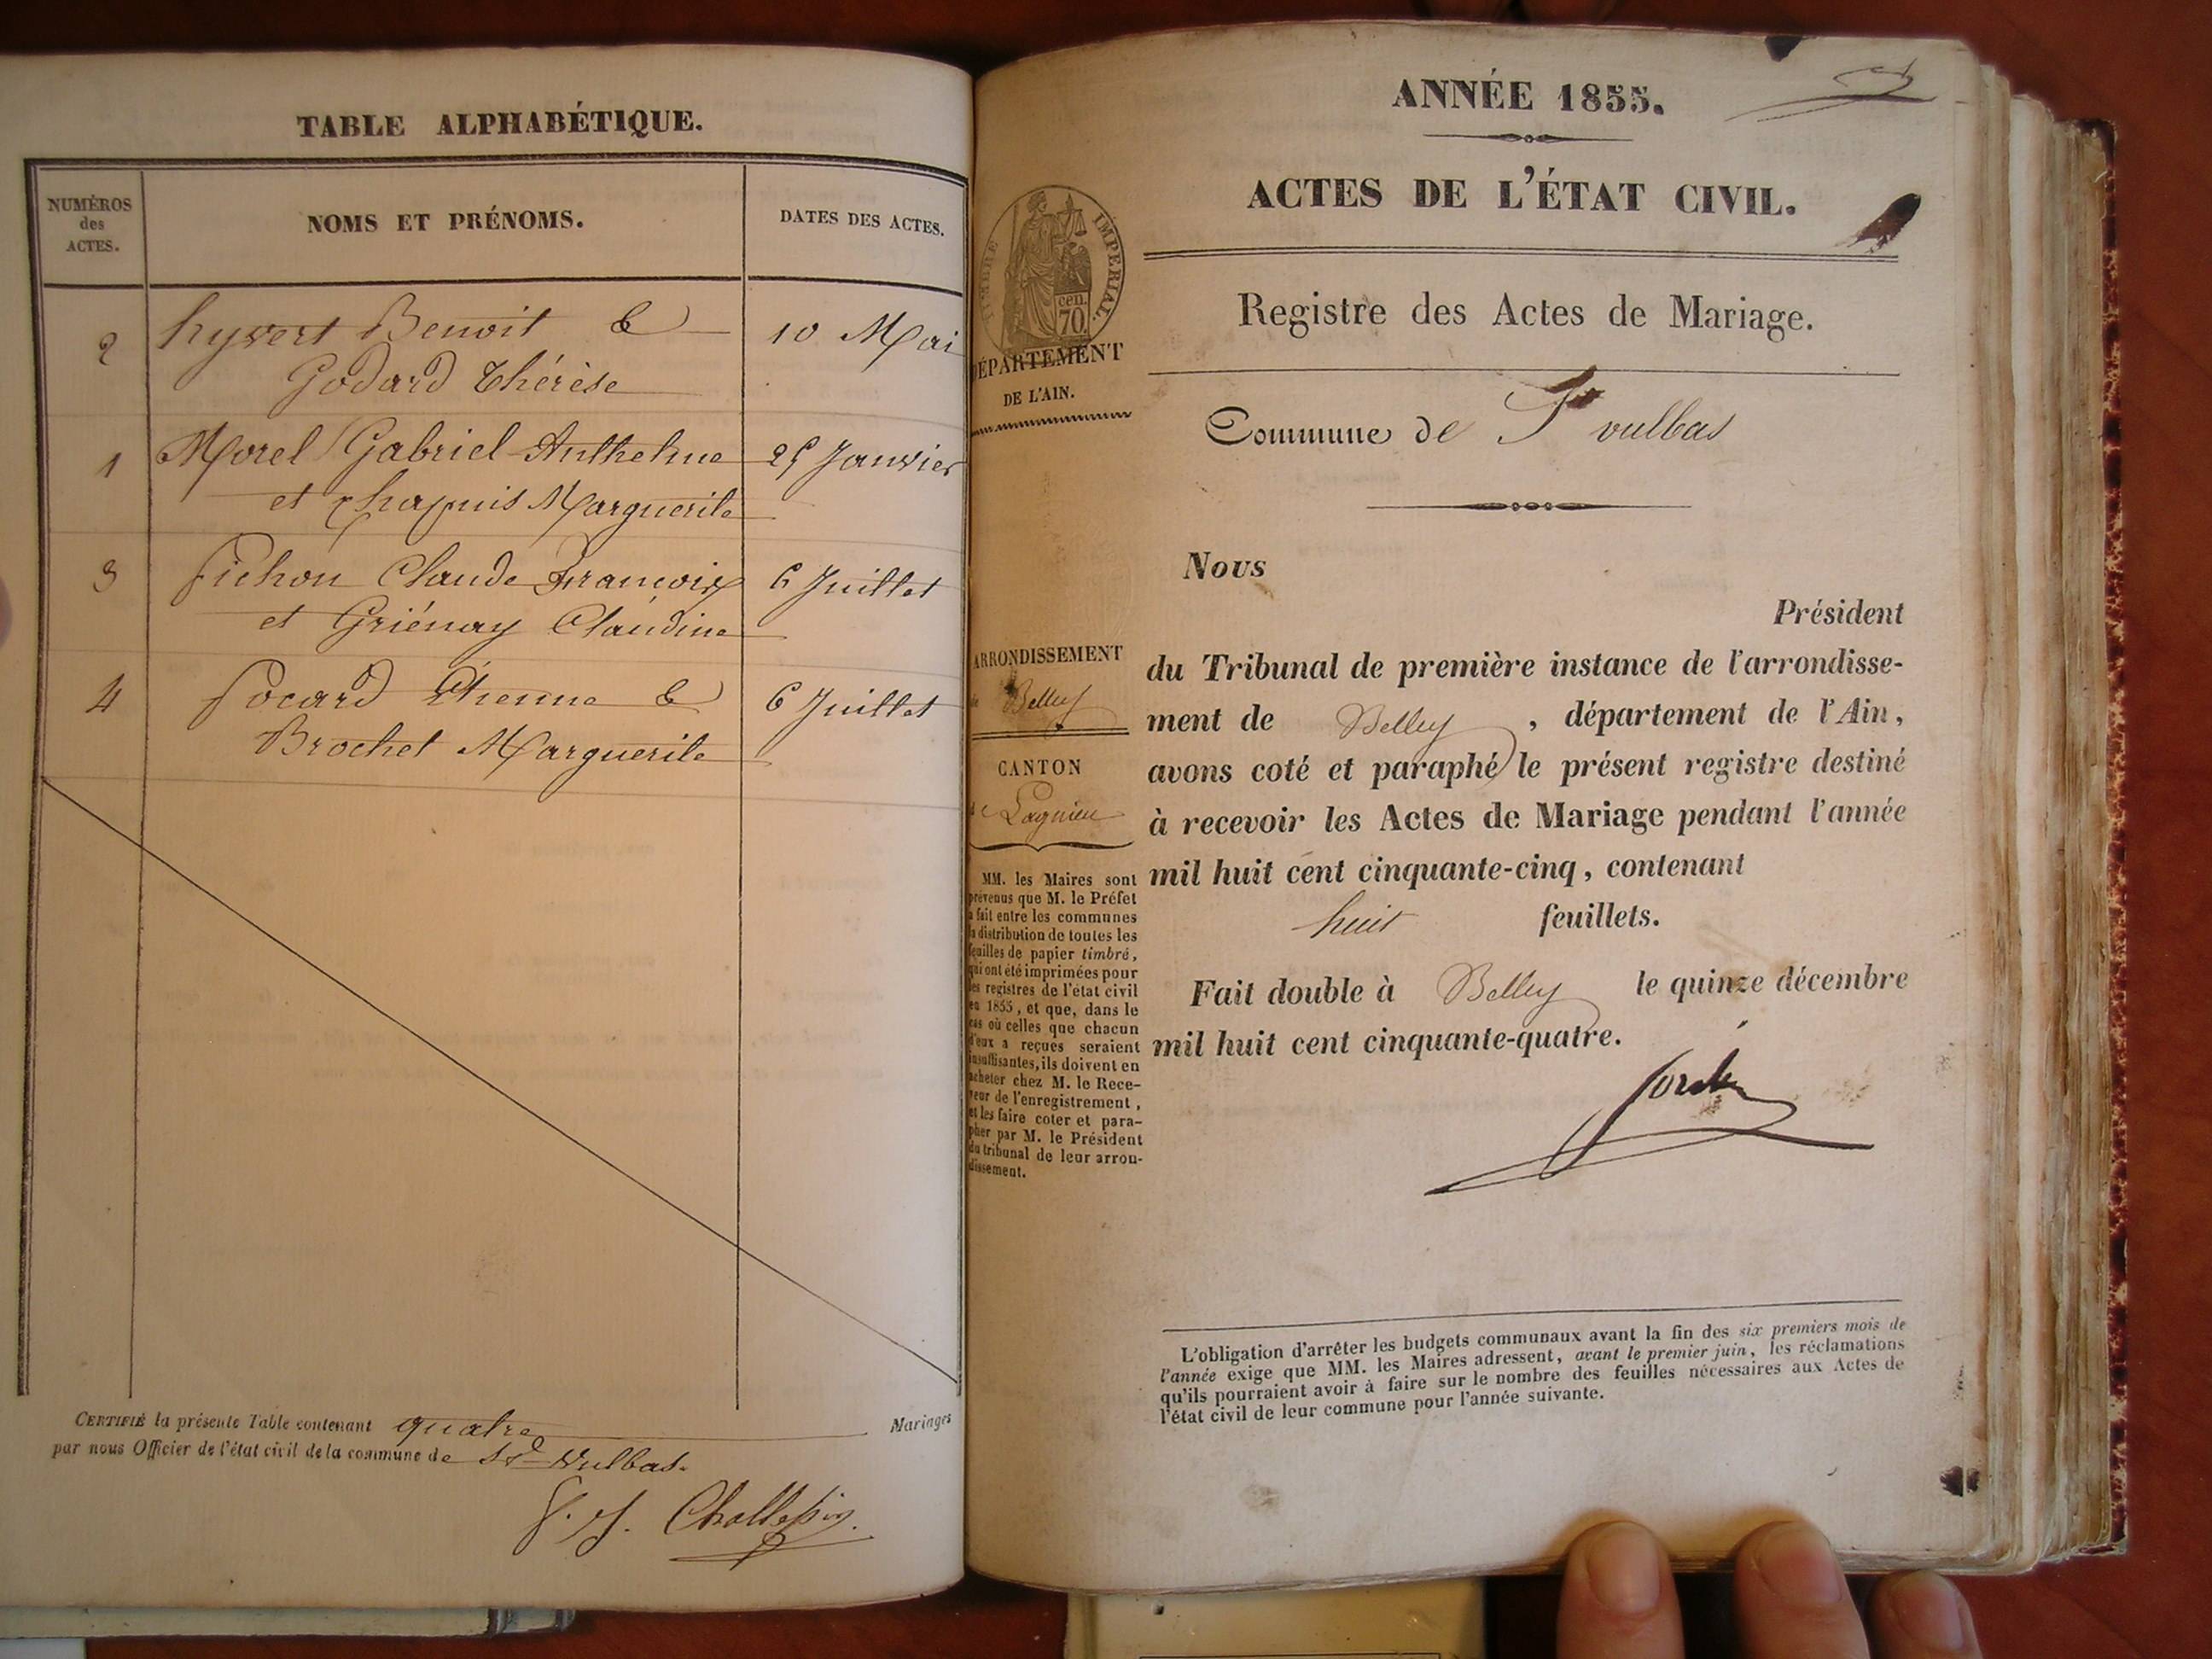 TABLE ALPHABÉTIQUE.
NUMÉROS
des
ACTES.
NOMS ET PRÉNOMS.
DATES DES ACTES.
2 hyvert Benoit & 10 Mai
Godard Thérèse
1 Morel Gabriel Anthelme 25 Janvier
et Chapuis Marguerite
3 Pichon Claude François 6 Juillet
et Griénay Claudine
4 Socard Etienne & 6 Juillet
Brochet Marguerite
CERTIFIÉ la présente Table contenant quatre Mariages
par nous Officier de l'état civil de la commune de St Vulbas.
ANNÉE 1855.
ACTES DE L'ÉTAT CIVIL.
TIMBRE IMPERIAL.
cen.
70.
DÉPARTEMENT
DE L'AIN.
Registre des Actes de Mariage.
Commune de St vulbas
ARRONDISSEMENT
de Belley
CANTON
de Lagnieu
MM. les Maires sont
prévenus que M. le Préfet
a fait entre les communes
la distribution de toutes les
feuilles de papier timbré,
qui ont été imprimées pour
les registres de l'état civil
en 1855, et que, dans le
cas où celles que chacun
d'eux a reçues seraient
insuffisantes, ils doivent en
acheter chez M. le Rece-
veur de l'enregistrement,
et les faire coter et para-
pher par M. le Président
du tribunal de leur arron-
dissement.
Nous
Président
du Tribunal de première instance de l'arrondisse-
ment de Belley, département de l'Ain,
avons coté et paraphé le présent registre destiné
à recevoir les Actes de Mariage pendant l'année
mil huit cent cinquante-cinq, contenant
huit feuillets.
Fait double à Belley le quinze décembre
mil huit cent cinquante-quatre.
L'obligation d'arrêter les budgets communaux avant la fin des six premiers mois de
l'année exige que MM. les Maires adressent, avant le premier juin, les réclamations
qu'ils pourraient avoir à faire sur le nombre des feuilles nécessaires aux Actes de
l'état civil de leur commune pour l'année suivante.